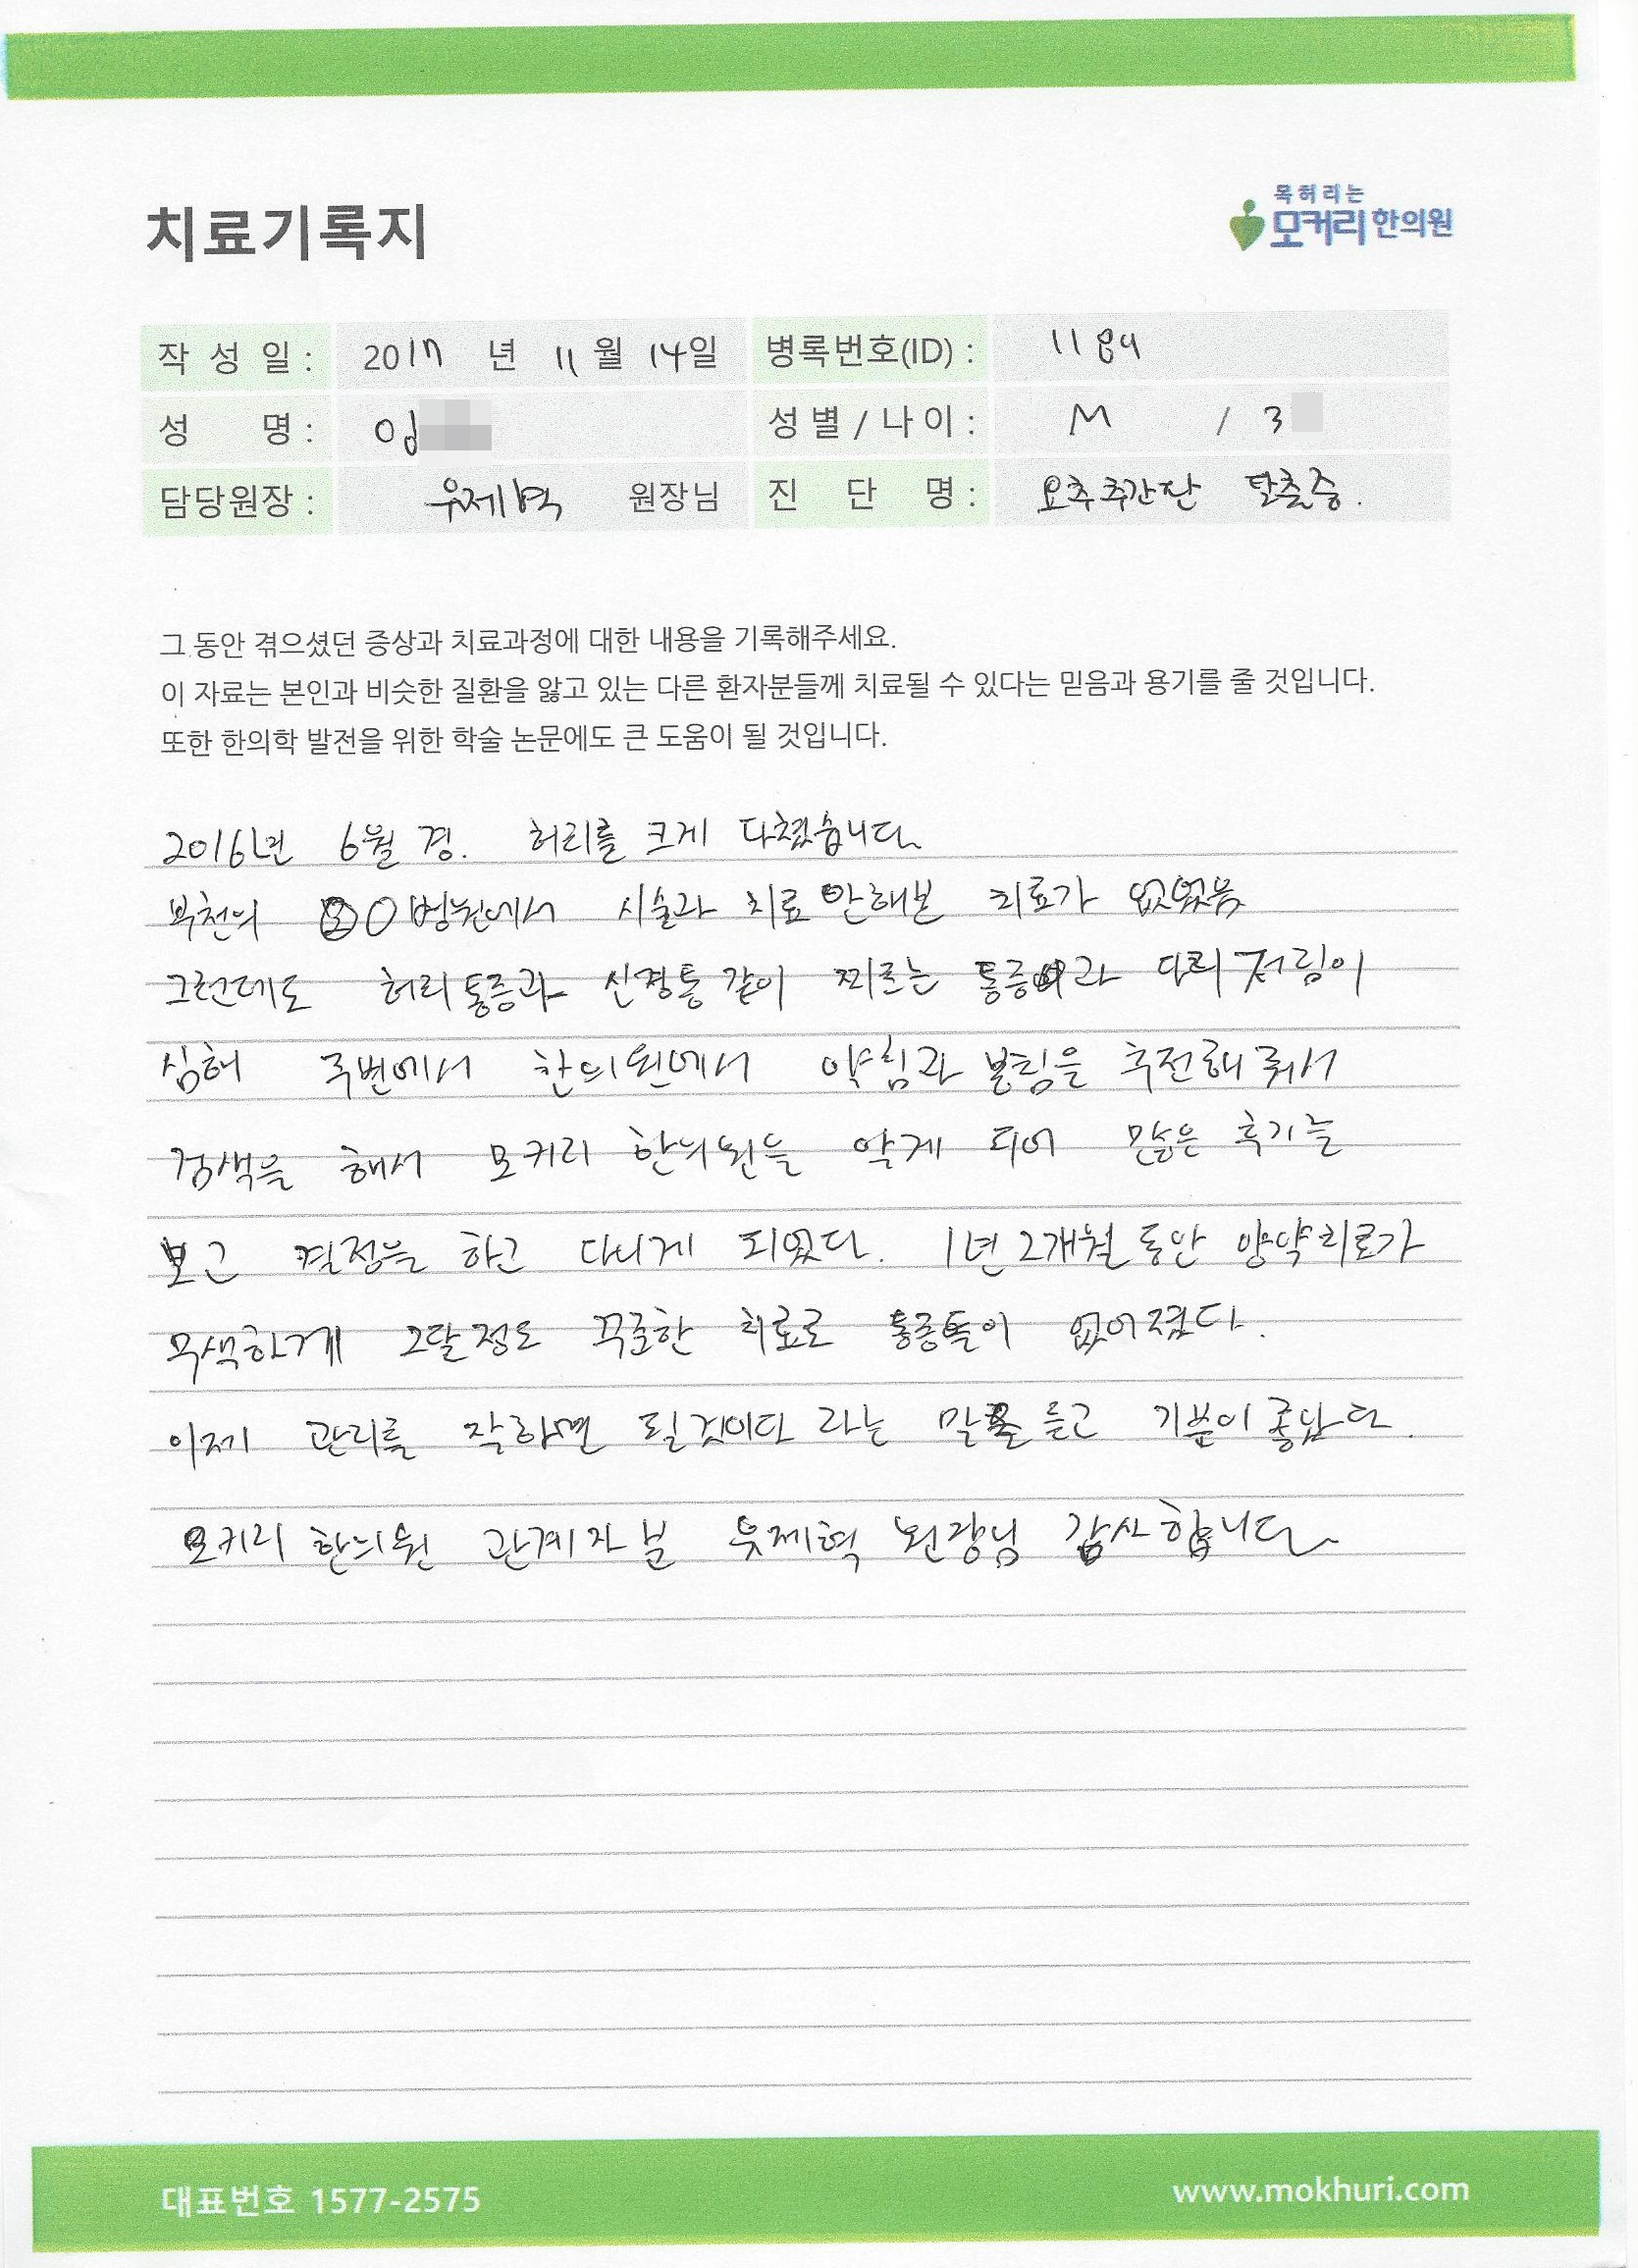 치료기록지
목허리는
모커리한의원
작성일: 2017 년 11 월 14일 병록번호(ID): 1189
성 명: 성별/나이: M / 3
담당원장: 우제혁 원장님 진 단 명: 요추추간판 탈출증.
그 동안 겪으셨던 증상과 치료과정에 대한 내용을 기록해주세요.
이 자료는 본인과 비슷한 질환을 앓고 있는 다른 환자분들께 치료될 수 있다는 믿음과 용기를 줄 것입니다.
또한 한의학 발전을 위한 학술 논문에도 큰 도움이 될 것입니다.
2016년 6월 경. 허리를 크게 다쳤습니다.
부천의 OO병원에서 시술과 치료 안해본 치료가 없었음
그런데도 허리통증과 신경통같이 찌르는 통증과 다리 저림이
심해 주변에서 한의원에서 약침과 봉침을 추천해 줘서
검색을 해서 모커리 한의원을 알게 되어 많은 후기를
보고 결정을 하고 다니게 되었다. 1년 2개월 동안 양약치료가
무색하게 2달정도 꾸준한 치료로 통증들이 없어졌다.
이제 관리를 잘하면 될것이다 라는 말을 듣고 기분이 좋았다.
모커리 한의원 관계자분 우제혁 원장님 감사합니다
대표번호 1577-2575
www.mokhuri.com